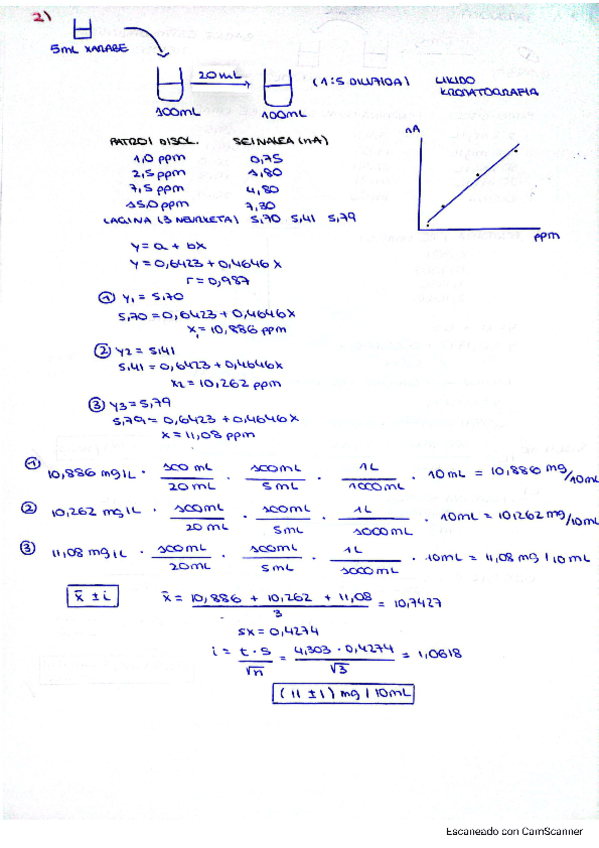 2)
5mL XARABE
20mL
(1:5 DILUIDA)
LIKIDO
KROMATOGRAFIA
100mL
100mL
PATROI DISOL. SEINALEA (nA)
1,0 ppm 0,75
2,5 ppm 1,80
7,5 ppm 4,80
15,0 ppm 7,30
LAGINA (3 NEURKETA) 5,70 5,41 5,79
nA
ppm
y = a + bx
y = 0,6423 + 0,4646 x
r = 0,987
① y₁ = 5,70
5,70 = 0,6423 + 0,4646x
x₁ = 10,886 ppm
② y₂ = 5,41
5,41 = 0,6423 + 0,4646x
x₂ = 10,262 ppm
③ y₃ = 5,79
5,79 = 0,6423 + 0,4646x
x = 11,08 ppm
① 10,886 mg/L · 100 mL/20 mL · 100mL/5 mL · 1L/1000mL · 10mL = 10,886 mg/10mL
② 10,262 mg/L · 100mL/20 mL · 100mL/5mL · 1L/1000mL · 10mL = 10,262 mg/10mL
③ 11,08 mg/L · 100mL/20mL · 100mL/5mL · 1L/1000mL · 10mL = 11,08 mg/10mL
x̄ ± i x̄ = 10,886 + 10,262 + 11,08/3 = 10,7427
sx = 0,4274
i = t·s/√n = 4,303 · 0,4274/√3 = 1,0618
(11 ± 1) mg/10mL
Escaneado con CamScanner